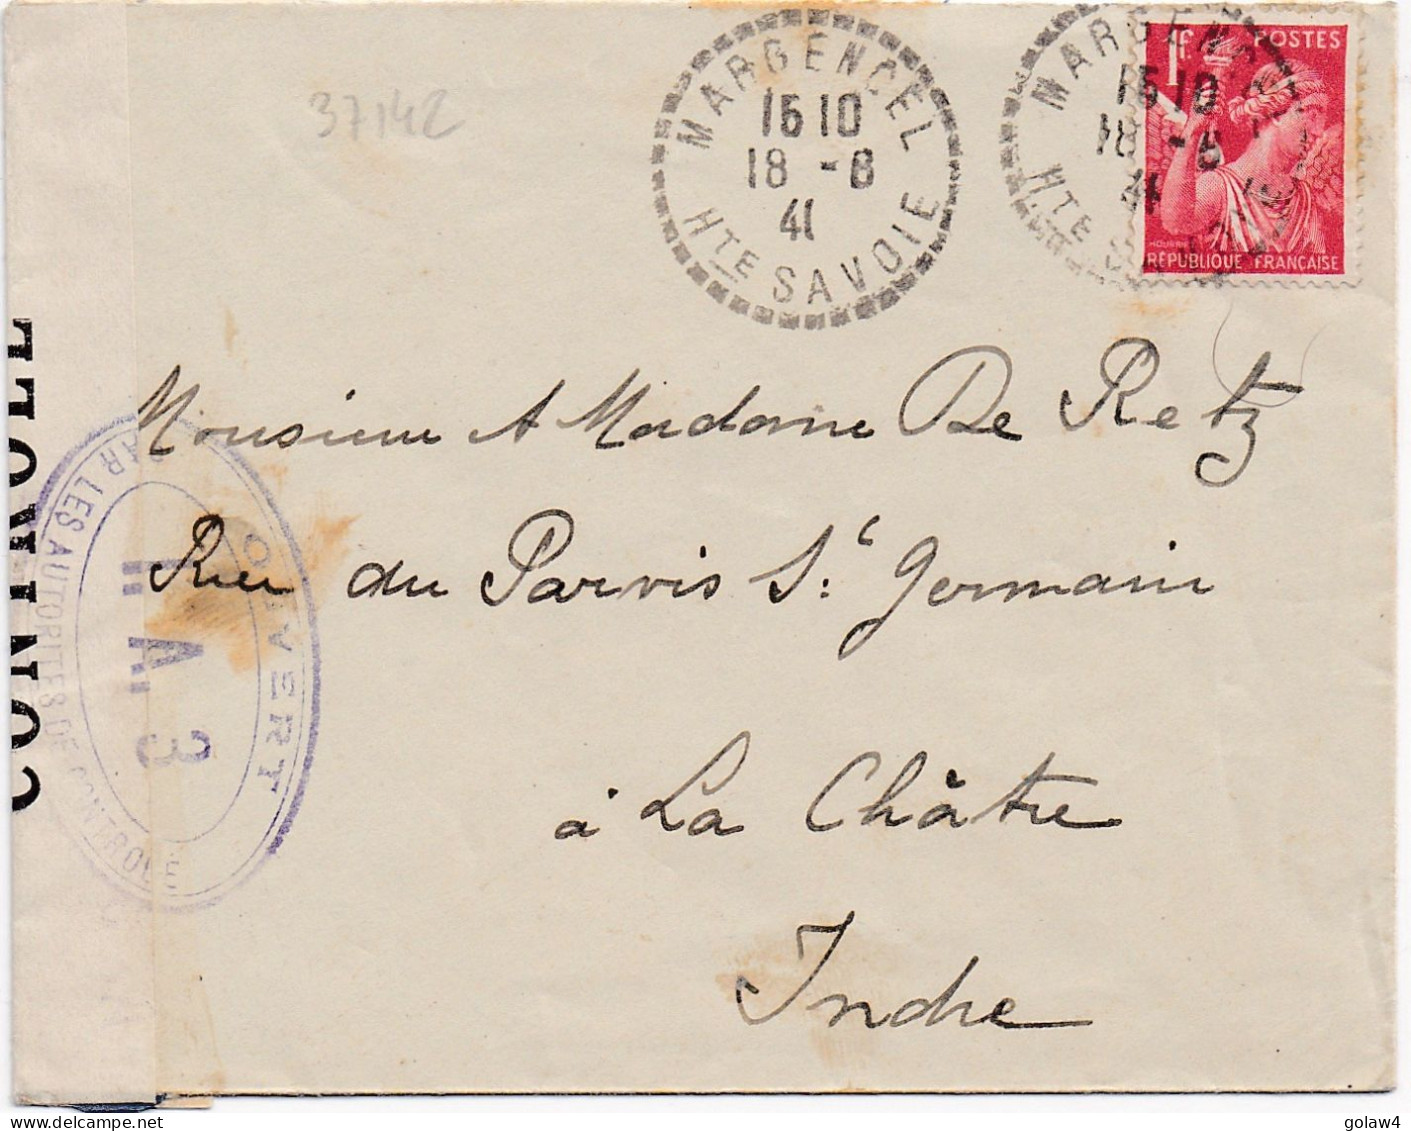 37142
MARGENCEL
16 10
18 -8
41
HTE SAVOIE
MARGENCEL
16 10
18 -8
41
HTE SAVOIE
1F. POSTES
RÉPUBLIQUE FRANÇAISE
Monsieur & Madame De Retz
Rue du Parvis St Germain
à La Châtre
Indre
CONTROLE
OUVERT
PAR LES AUTORITÉS DE CONTROLE
A 3
golaw4